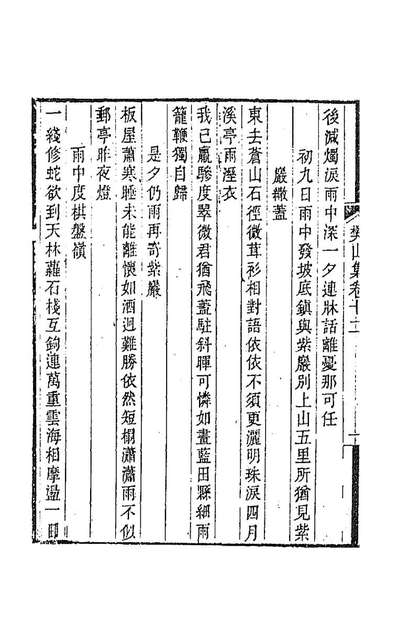 後減燭淚雨中深一夕連牀話離憂那可任
初九日雨中發坡底鎮與紫巖別上山五里所猶見紫
巖繖蓋
東去蒼山石徑微茸衫相對語依依不須更灑明珠淚四月
溪亭雨溼衣
我已羸驂度翠微君猶飛蓋駐斜暉可憐如畫藍田縣細雨
籠鞭獨自歸
是夕仍雨再寄紫巖
板屋蕭寒睡未能離懷如酒迥難勝依然短榻瀟瀟雨不似
郵亭昨夜燈
雨中度棋盤嶺
一綫修蛇欲到天林蘿石棧互鉤連萬重雲海相摩盪一
樊山集卷十二